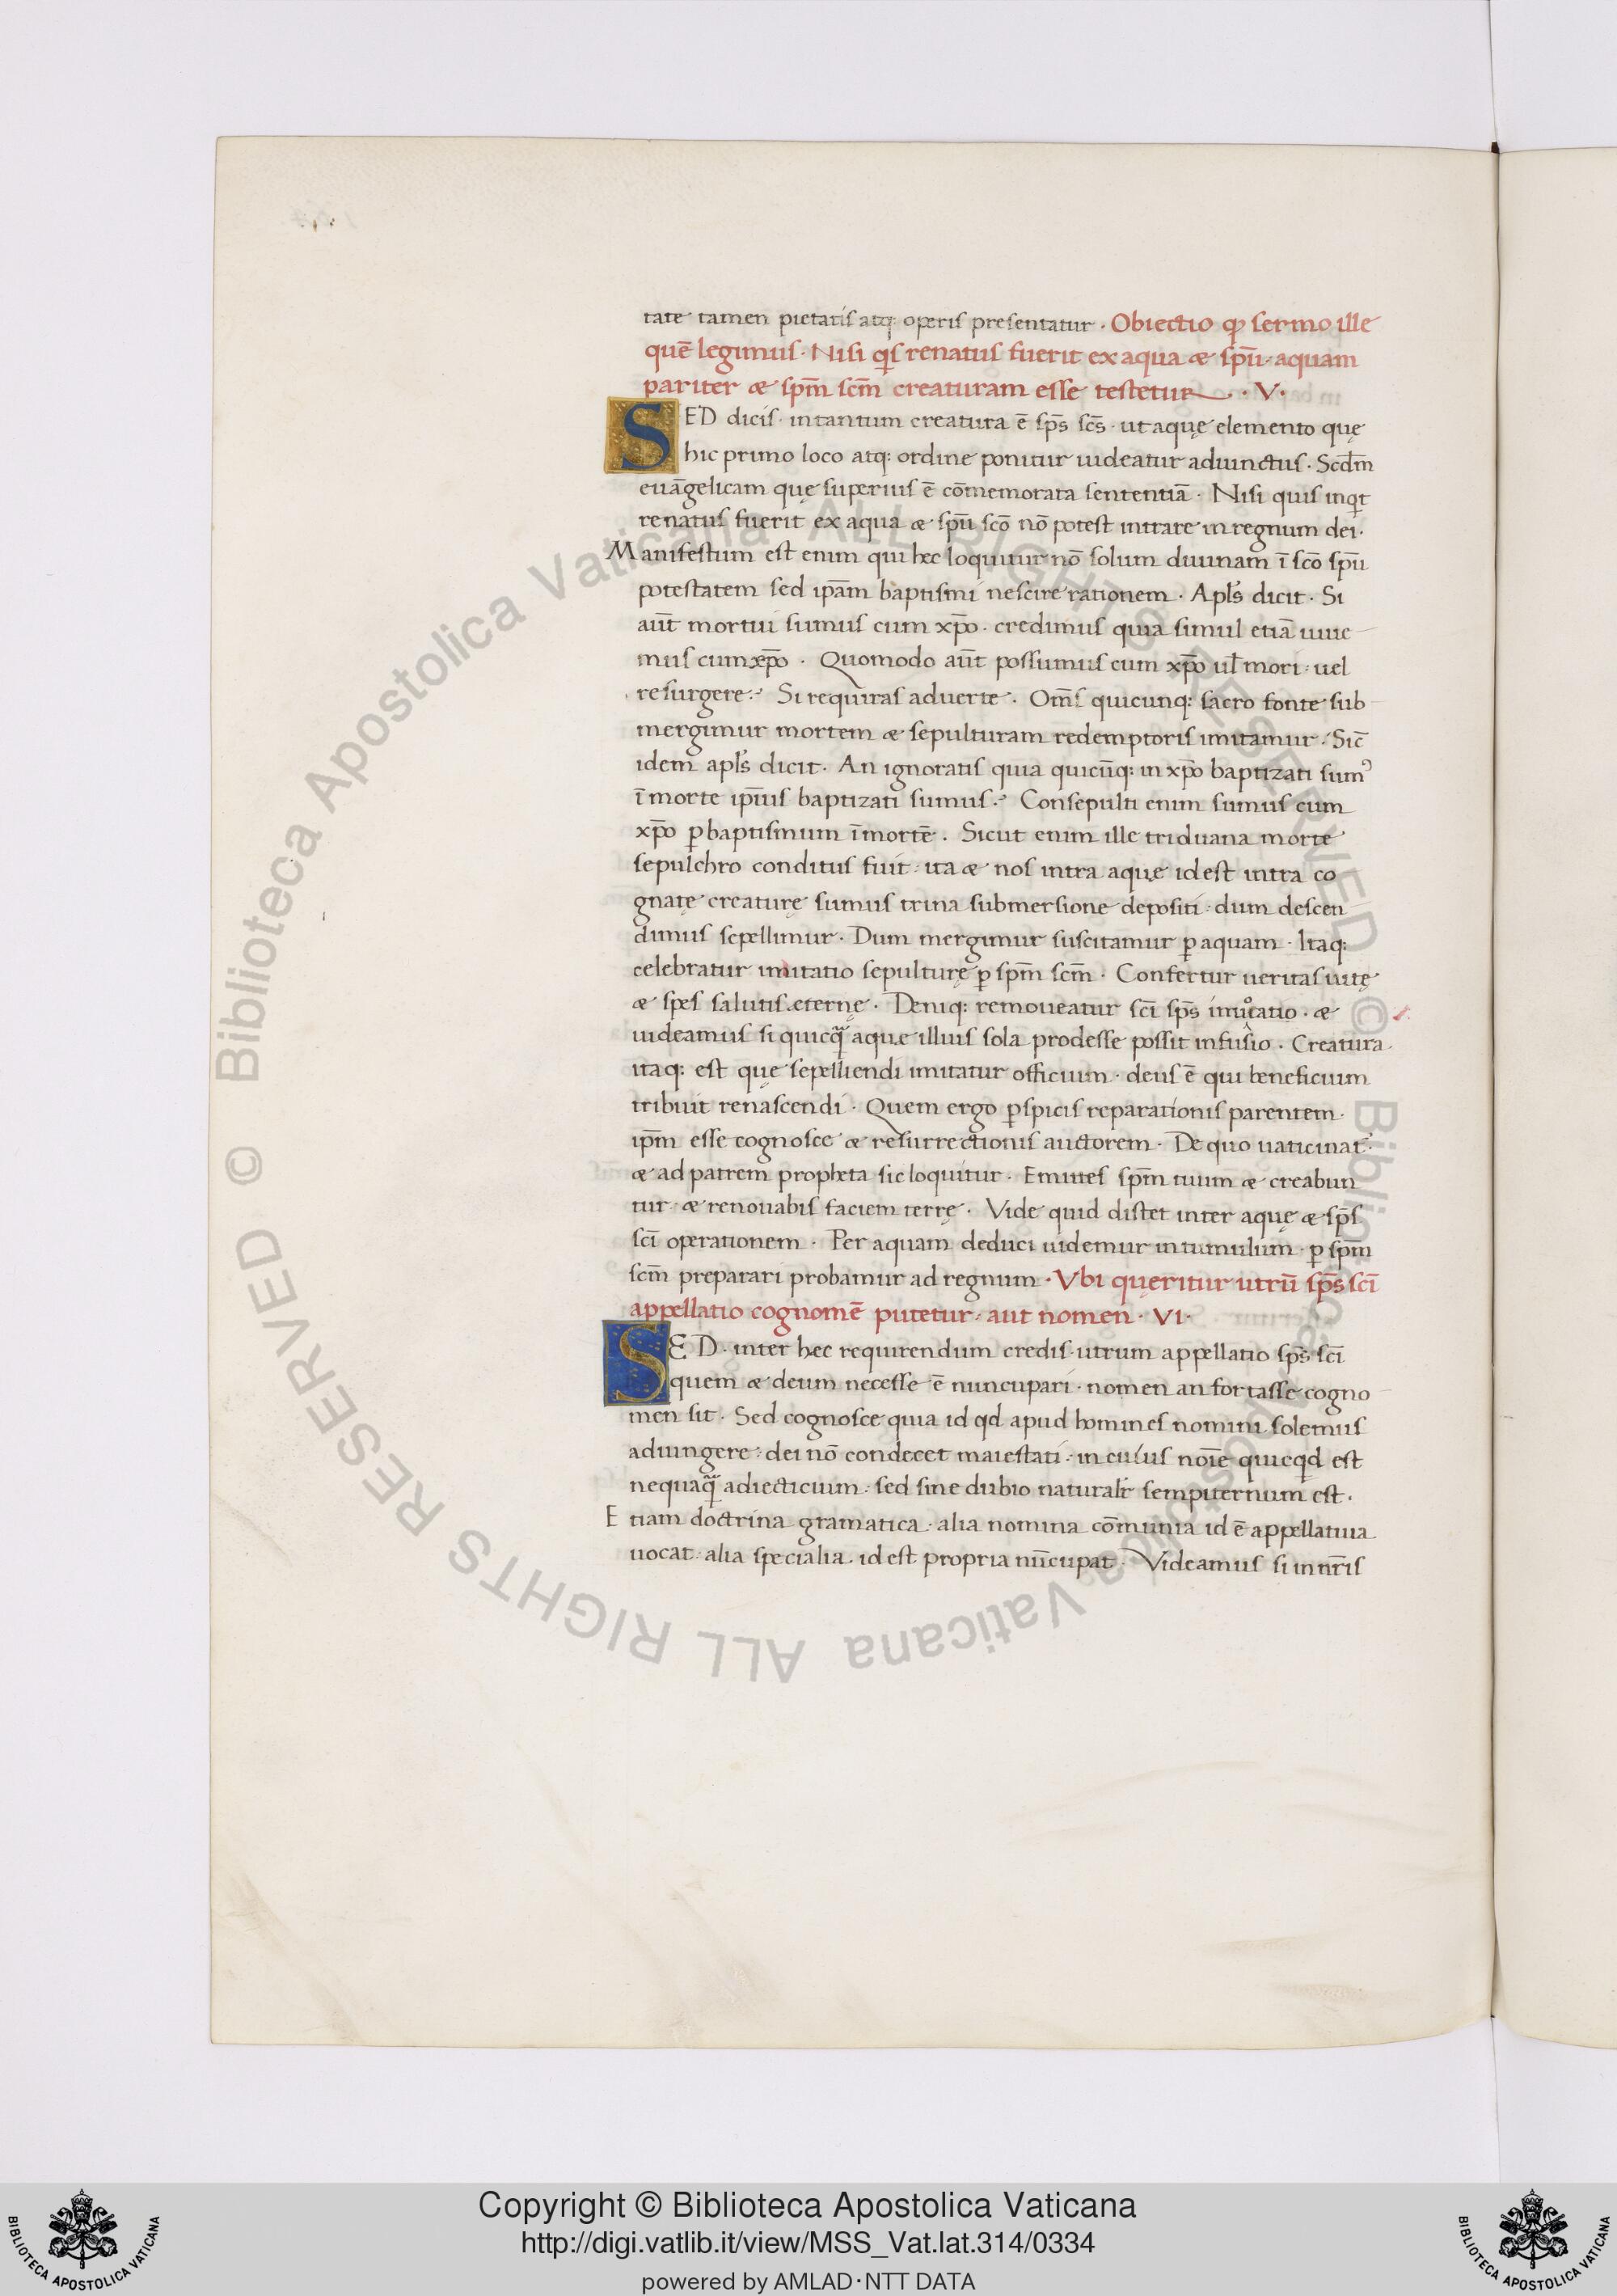 tate tamen pietatis atq: operis presentatur · Obiectio qđ sermo ille
quē legimus · Nisi qis renatus fuerit ex aqua æ spū · aquam
pariter æ spm̄ scm̄ creaturam esse testetur · V ·
SED dicis · in tantum creatura ē sps̄ scs̄ · ut aquę elemento quę
hic primo loco atq: ordine ponitur uideatur adiunctus · Scdm̄
euāgelicam quę superius ē cōmemorata sententiā · Nisi quis inqit
renatus fuerit ex aqua æ spū scō nō potest intrare in regnum dei ·
Manifestum est enim qui hec loquitur nō solum diuinam ī scō spū
potestatem sed ipām baptismi nescire rationem · Apls̄ dicit · Si
aūt mortui sumus cum xp̄o · credimus quia simul etiā uiue
mus cum xp̄o · Quomodo aūt possumus cum xp̄o ul̄ mori · uel
resurgere · Si requiras aduerte · Om̄s quicunq: sacro fonte sub
mergimur mortem æ sepulturam redemptoris imitamur · Sic̄
idem apls̄ dicit · An ignoratis quia quicūq: in xp̄o baptizati sum᾿
ī morte ipīus baptizati sumus · Consepulti enim sumus cum
xp̄o p̱ baptismum ī mortē · Sicut enim ille triduana morte
sepulchro conditus fuit · ita æ nos intra aque id est intra co
gnatę creaturę sumus trina submersione depositi · dum descen
dimus sepellimur · Dum mergimur suscitamur p̱ aquam · Itaq:
celebratur imitatio sepulturę p̱ spm̄ scm̄ · Confertur ueritas uitę
æ spes salutis eternę · Deniq: remoueatur scī sps̄ inuocatio · æ
uideamus si quicq̄ aque illius sola prodesse possit infusio · Creatura
itaq: est quę sepelliendi imitatur officium · deus ē qui beneficium
tribuit renascendi · Quem ergo p̱spicis reparationis parentem ·
ipm̄ esse cognosce æ resurrectionis auctorem · De quo uaticinat᾿
æ ad patrem propheta sic loquitur · Emittes spm̄ tuum æ creabun
tur · æ renouabis faciem terrę · Vide quid distet inter aquę æ sps̄
scī operationem · Per aquam deduci uidemur in tumulum · p̱ spm̄
scm̄ preparari probamur ad regnum · Vbi quęritur utrū sps̄ scī
appellatio cognomē putetur · aut nomen · VI ·
SED · inter hec requirendum credis · utrum appellatio sps̄ scī
quem æ deum necesse ē nuncupari · nomen an fortasse cogno
men sit · Sed cognosce quia id qd apud homines nomini solemus
adiungere · dei nō condecet maiestati · in cuius noīe quicqd est
nequaq̄ adiecticium · sed sine dubio naturalr̄ sempiternum est ·
Etiam doctrina gramatica · alia nomina cōmunia id ē appellatiua
uocat · alia specialia · id est propria nūcupat · Videamus si in nrīs
© Biblioteca Apostolica Vaticana ALL RIGHTS RESERVED © Biblioteca Apostolica Vaticana ALL RIGHTS RESERVED
Copyright © Biblioteca Apostolica Vaticana
http://digi.vatlib.it/view/MSS_Vat.lat.314/0334
powered by AMLAD·NTT DATA
BIBLIOTECA APOSTOLICA VATICANA
BIBLIOTECA APOSTOLICA VATICANA